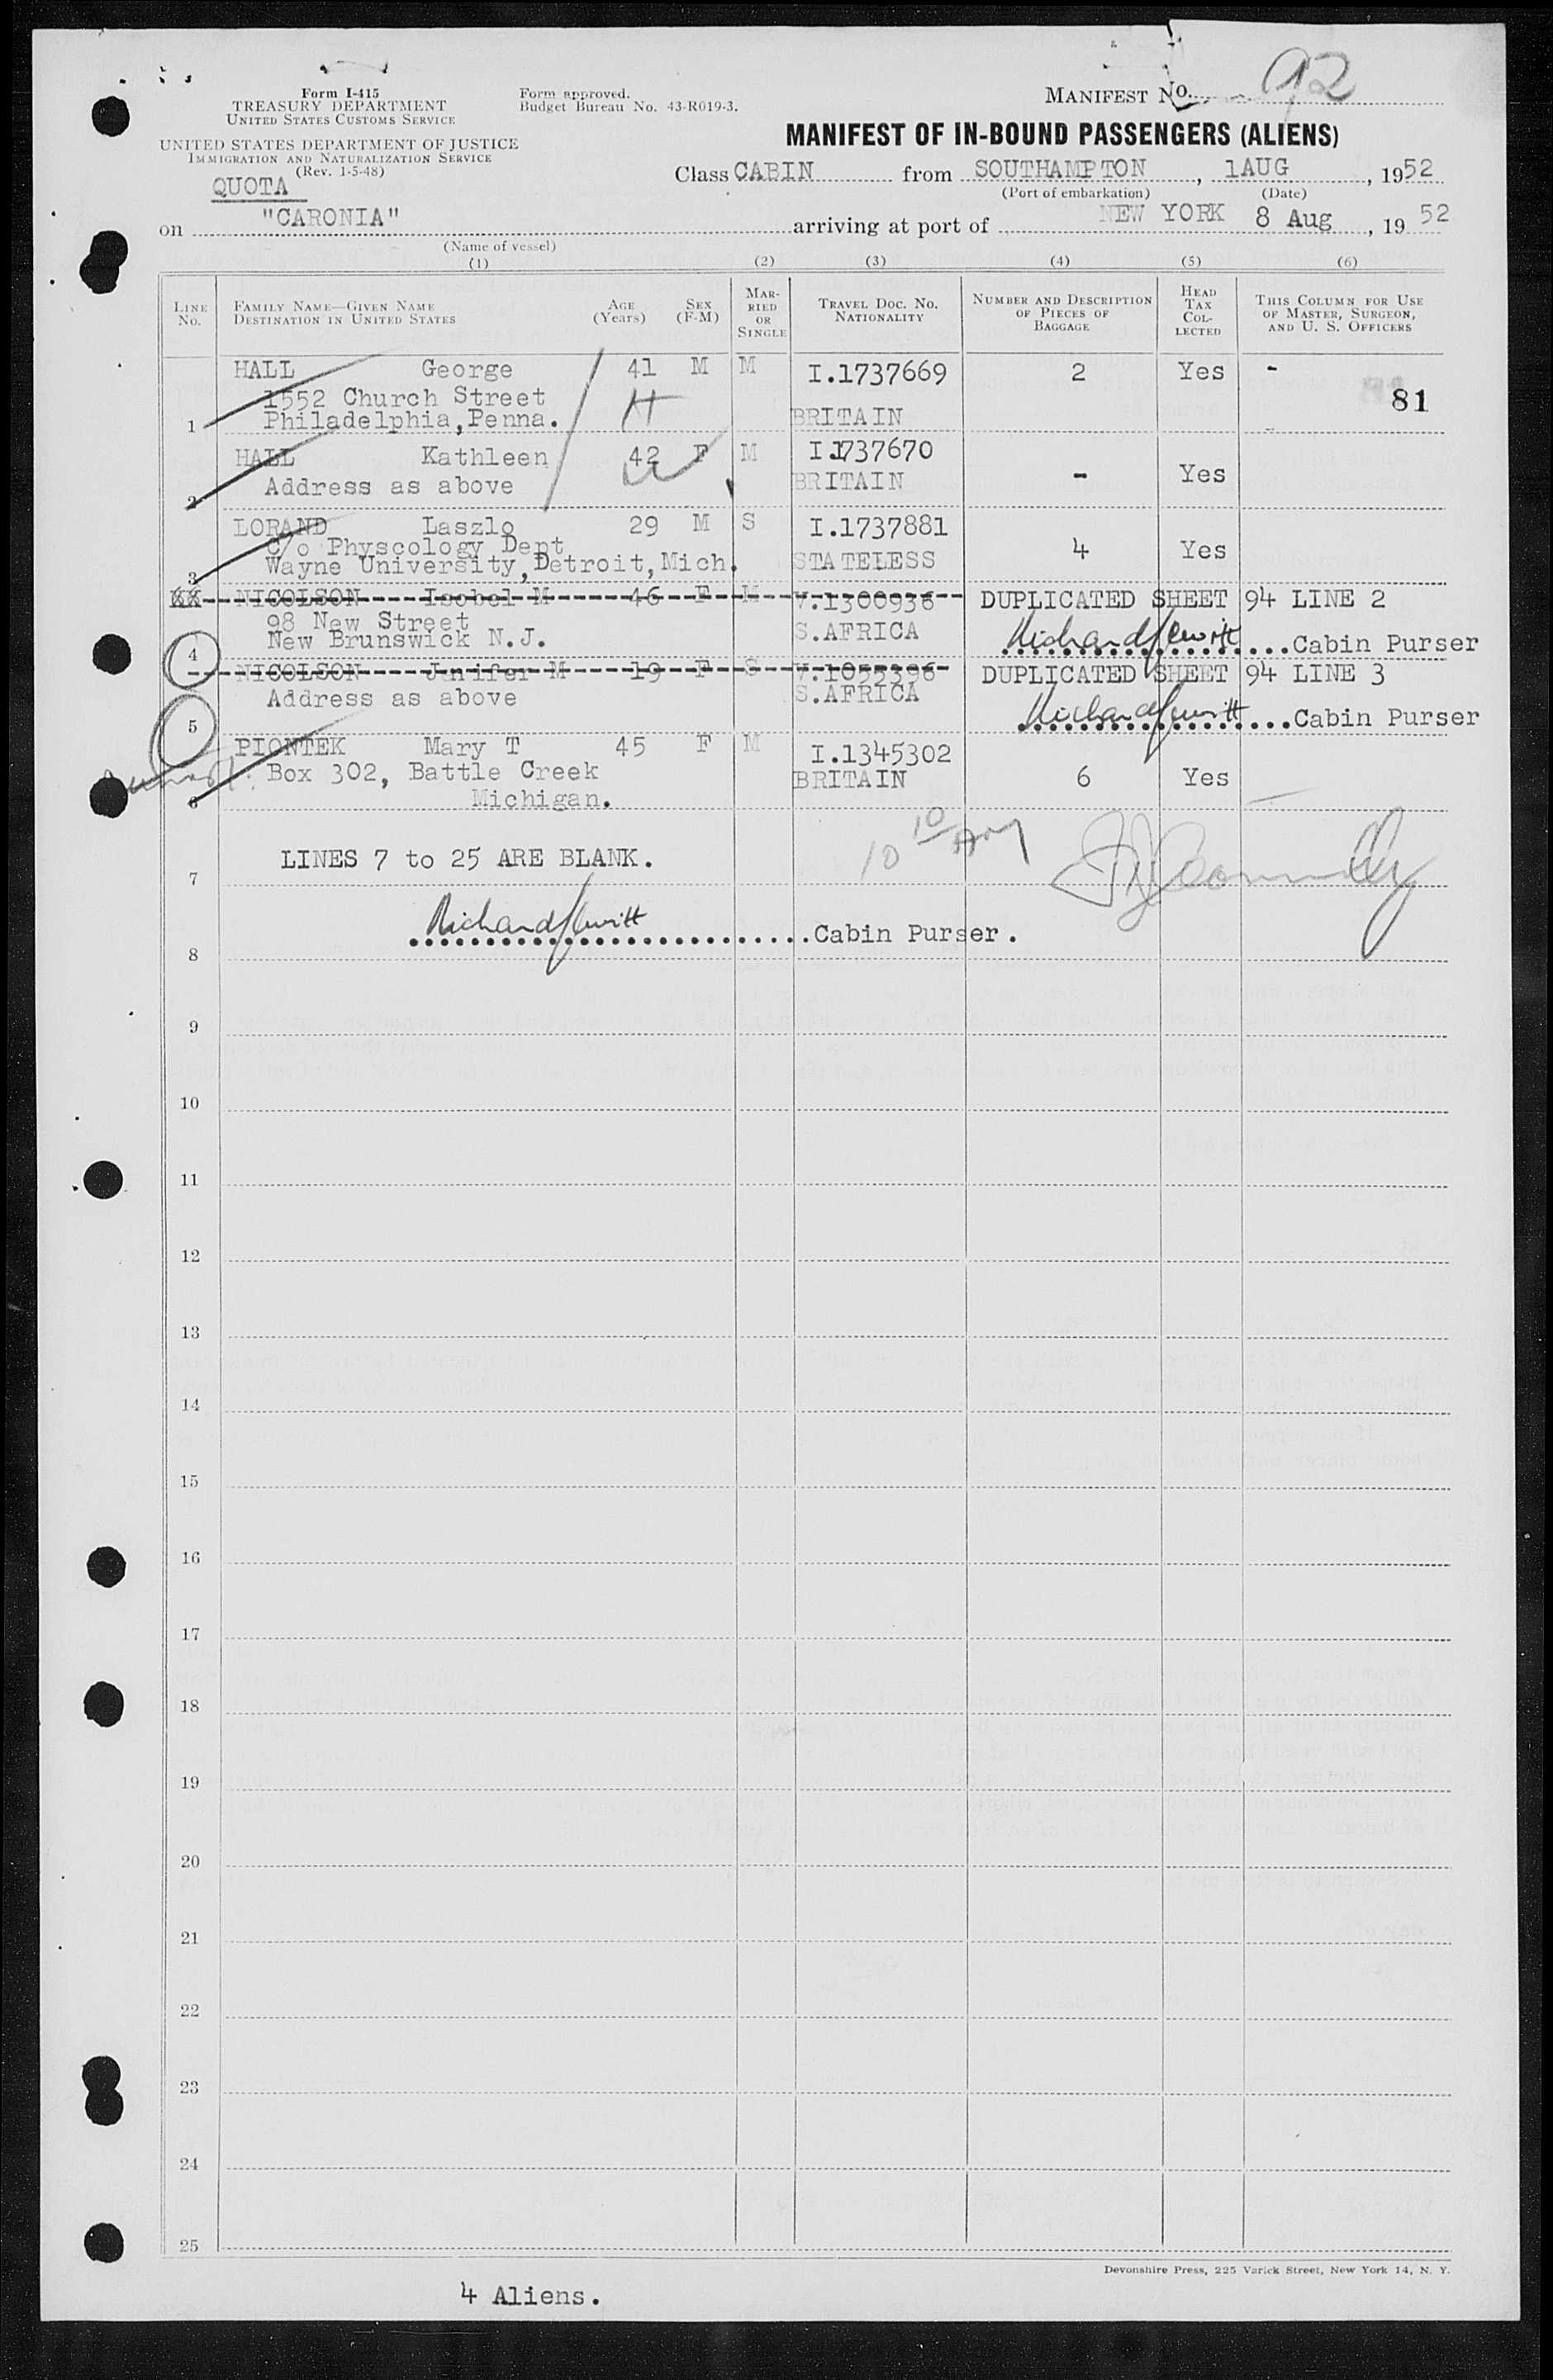 Form I-415
TREASURY DEPARTMENT
UNITED STATES CUSTOMS SERVICE
UNITED STATES DEPARTMENT OF JUSTICE
IMMIGRATION AND NATURALIZATION SERVICE
(Rev. 1-5-48)
Form approved.
Budget Bureau No. 43-R019-3.
MANIFEST No. 92
MANIFEST OF IN-BOUND PASSENGERS (ALIENS)
QUOTA
Class CABIN from SOUTHAMPTON, 1AUG, 1952
(Port of embarkation) (Date)
on "CARONIA" arriving at port of NEW YORK 8 Aug, 19 52
(Name of vessel)
(1) (2) (3) (4) (5) (6)
LINE No.
FAMILY NAME—GIVEN NAME
DESTINATION IN UNITED STATES
AGE (Years)
SEX (F-M)
MARRIED OR SINGLE
TRAVEL DOC. No. NATIONALITY
NUMBER AND DESCRIPTION OF PIECES OF BAGGAGE
HEAD TAX COLLECTED
THIS COLUMN FOR USE OF MASTER, SURGEON, AND U. S. OFFICERS
HALL George 41 M M I.1737669 2 Yes -
1552 Church Street 81
1 Philadelphia,Penna. H BRITAIN
HALL Kathleen 42 F M I 1737670
2 Address as above BRITAIN - Yes
LORAND Laszlo 29 M S I.1737881
c/o Physcology Dept 4 Yes
3 Wayne University,Detroit,Mich. STATELESS
XX NICOLSON Isobel M 46 F M V.1300936 DUPLICATED SHEET 94 LINE 2
98 New Street
4 New Brunswick N.J. S.AFRICA ....Cabin Purser
NICOLSON Jenifer M 19 F S V.1055396 DUPLICATED SHEET 94 LINE 3
Address as above S.AFRICA
5 ....Cabin Purser
PIONTEK Mary T 45 F M I.1345302
Box 302, Battle Creek BRITAIN 6 Yes
6 Michigan.
LINES 7 to 25 ARE BLANK.
7
....Cabin Purser.
8
9
10
11
12
13
14
15
16
17
18
19
20
21
22
23
24
25
Devonshire Press, 225 Varick Street, New York 14, N. Y.
4 Aliens.